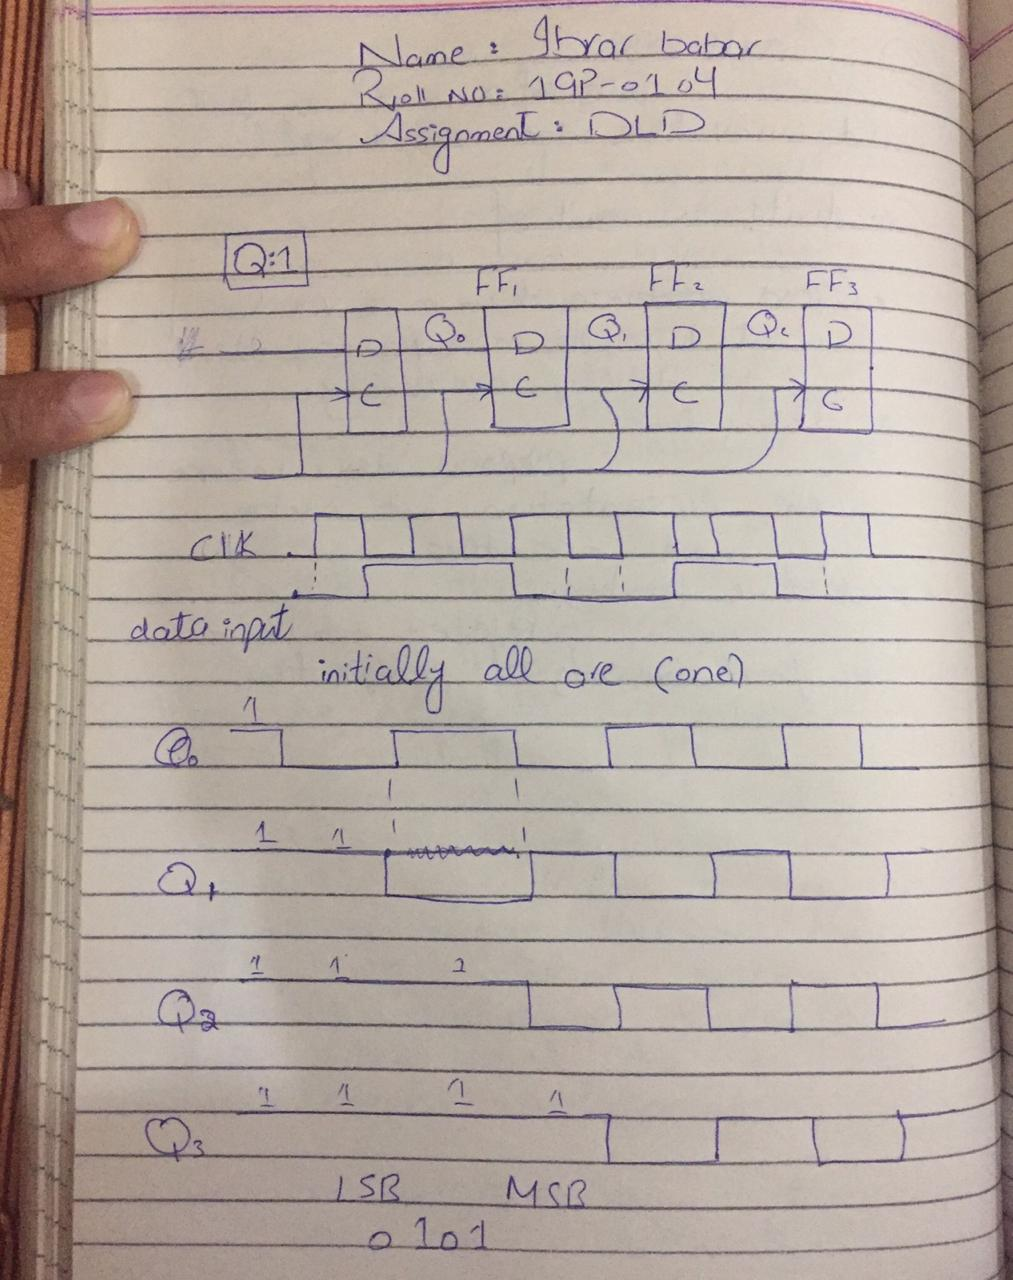 Name : Ibrar babar
Roll NO: 19P-0104
Assignment : DLD
Q:1
FF1 FF2 FF3
D Q0 D Q1 D Q2 D
C C C C
ClK
data input
initially all are (one)
1
Q0
1 1
Q1
1 1 1
Q2
1 1 1 1
Q3
LSB MSB
0101